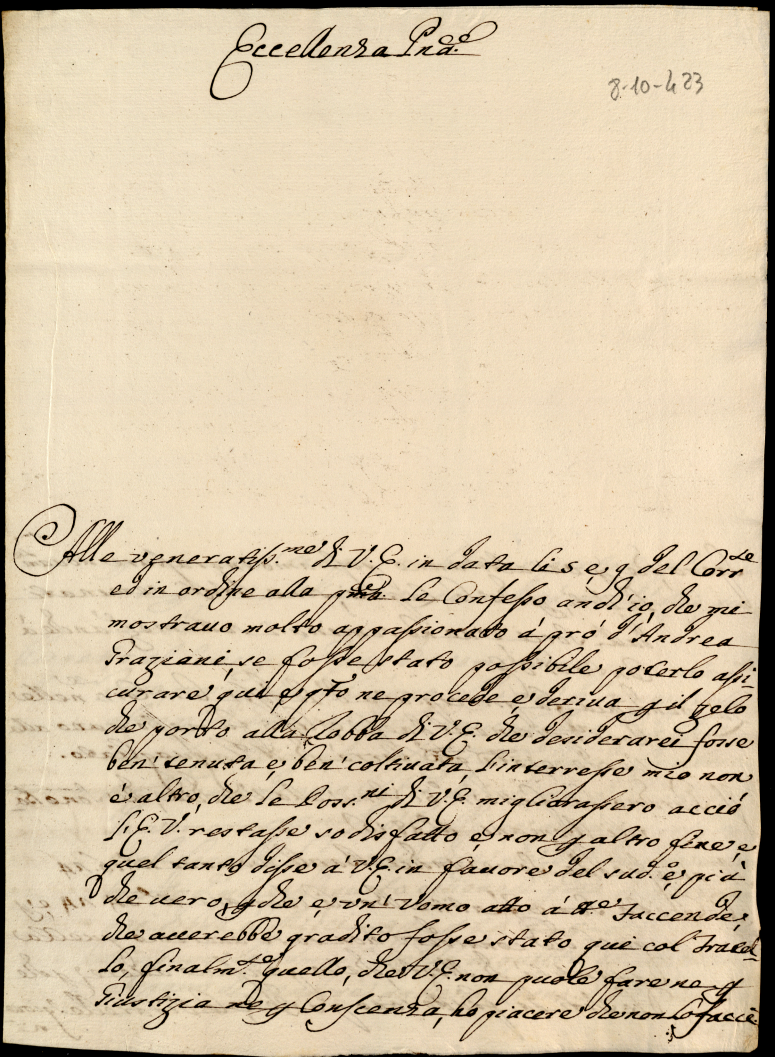 Eccellenza Pna.
8-10-423
Alle veneratiss.me di V.E. in data li 5 e 9 del Corr.te
ed in ordine alla pma. Le Confesso anch'io, che mi
mostravo molto appassionato á pró d'Andrea
Graziani, se fosse stato possibile poterlo assi-
curare qui, e qto ne procede, e deriva p il zelo
che porto alla Robba di V.E. che desiderarei fosse
ben' tenuta, e ben' coltivata, l'interresse mio non
é altro, che le Poss.ni di V.E. migliorassero acció
l'E.V. restasse sodisfatto e non p altro fine, e
quel tanto disse á V.E. in favore del sud.o é piú
che vero, p che é un' Uomo atto á tte faccende,
che averebbe gradito fosse stato qui col' fratel-
lo, finalm.te quello, che V.E. non puole fare ne p
Giustizia ne p Conscenza, ho piacere che non lo facci